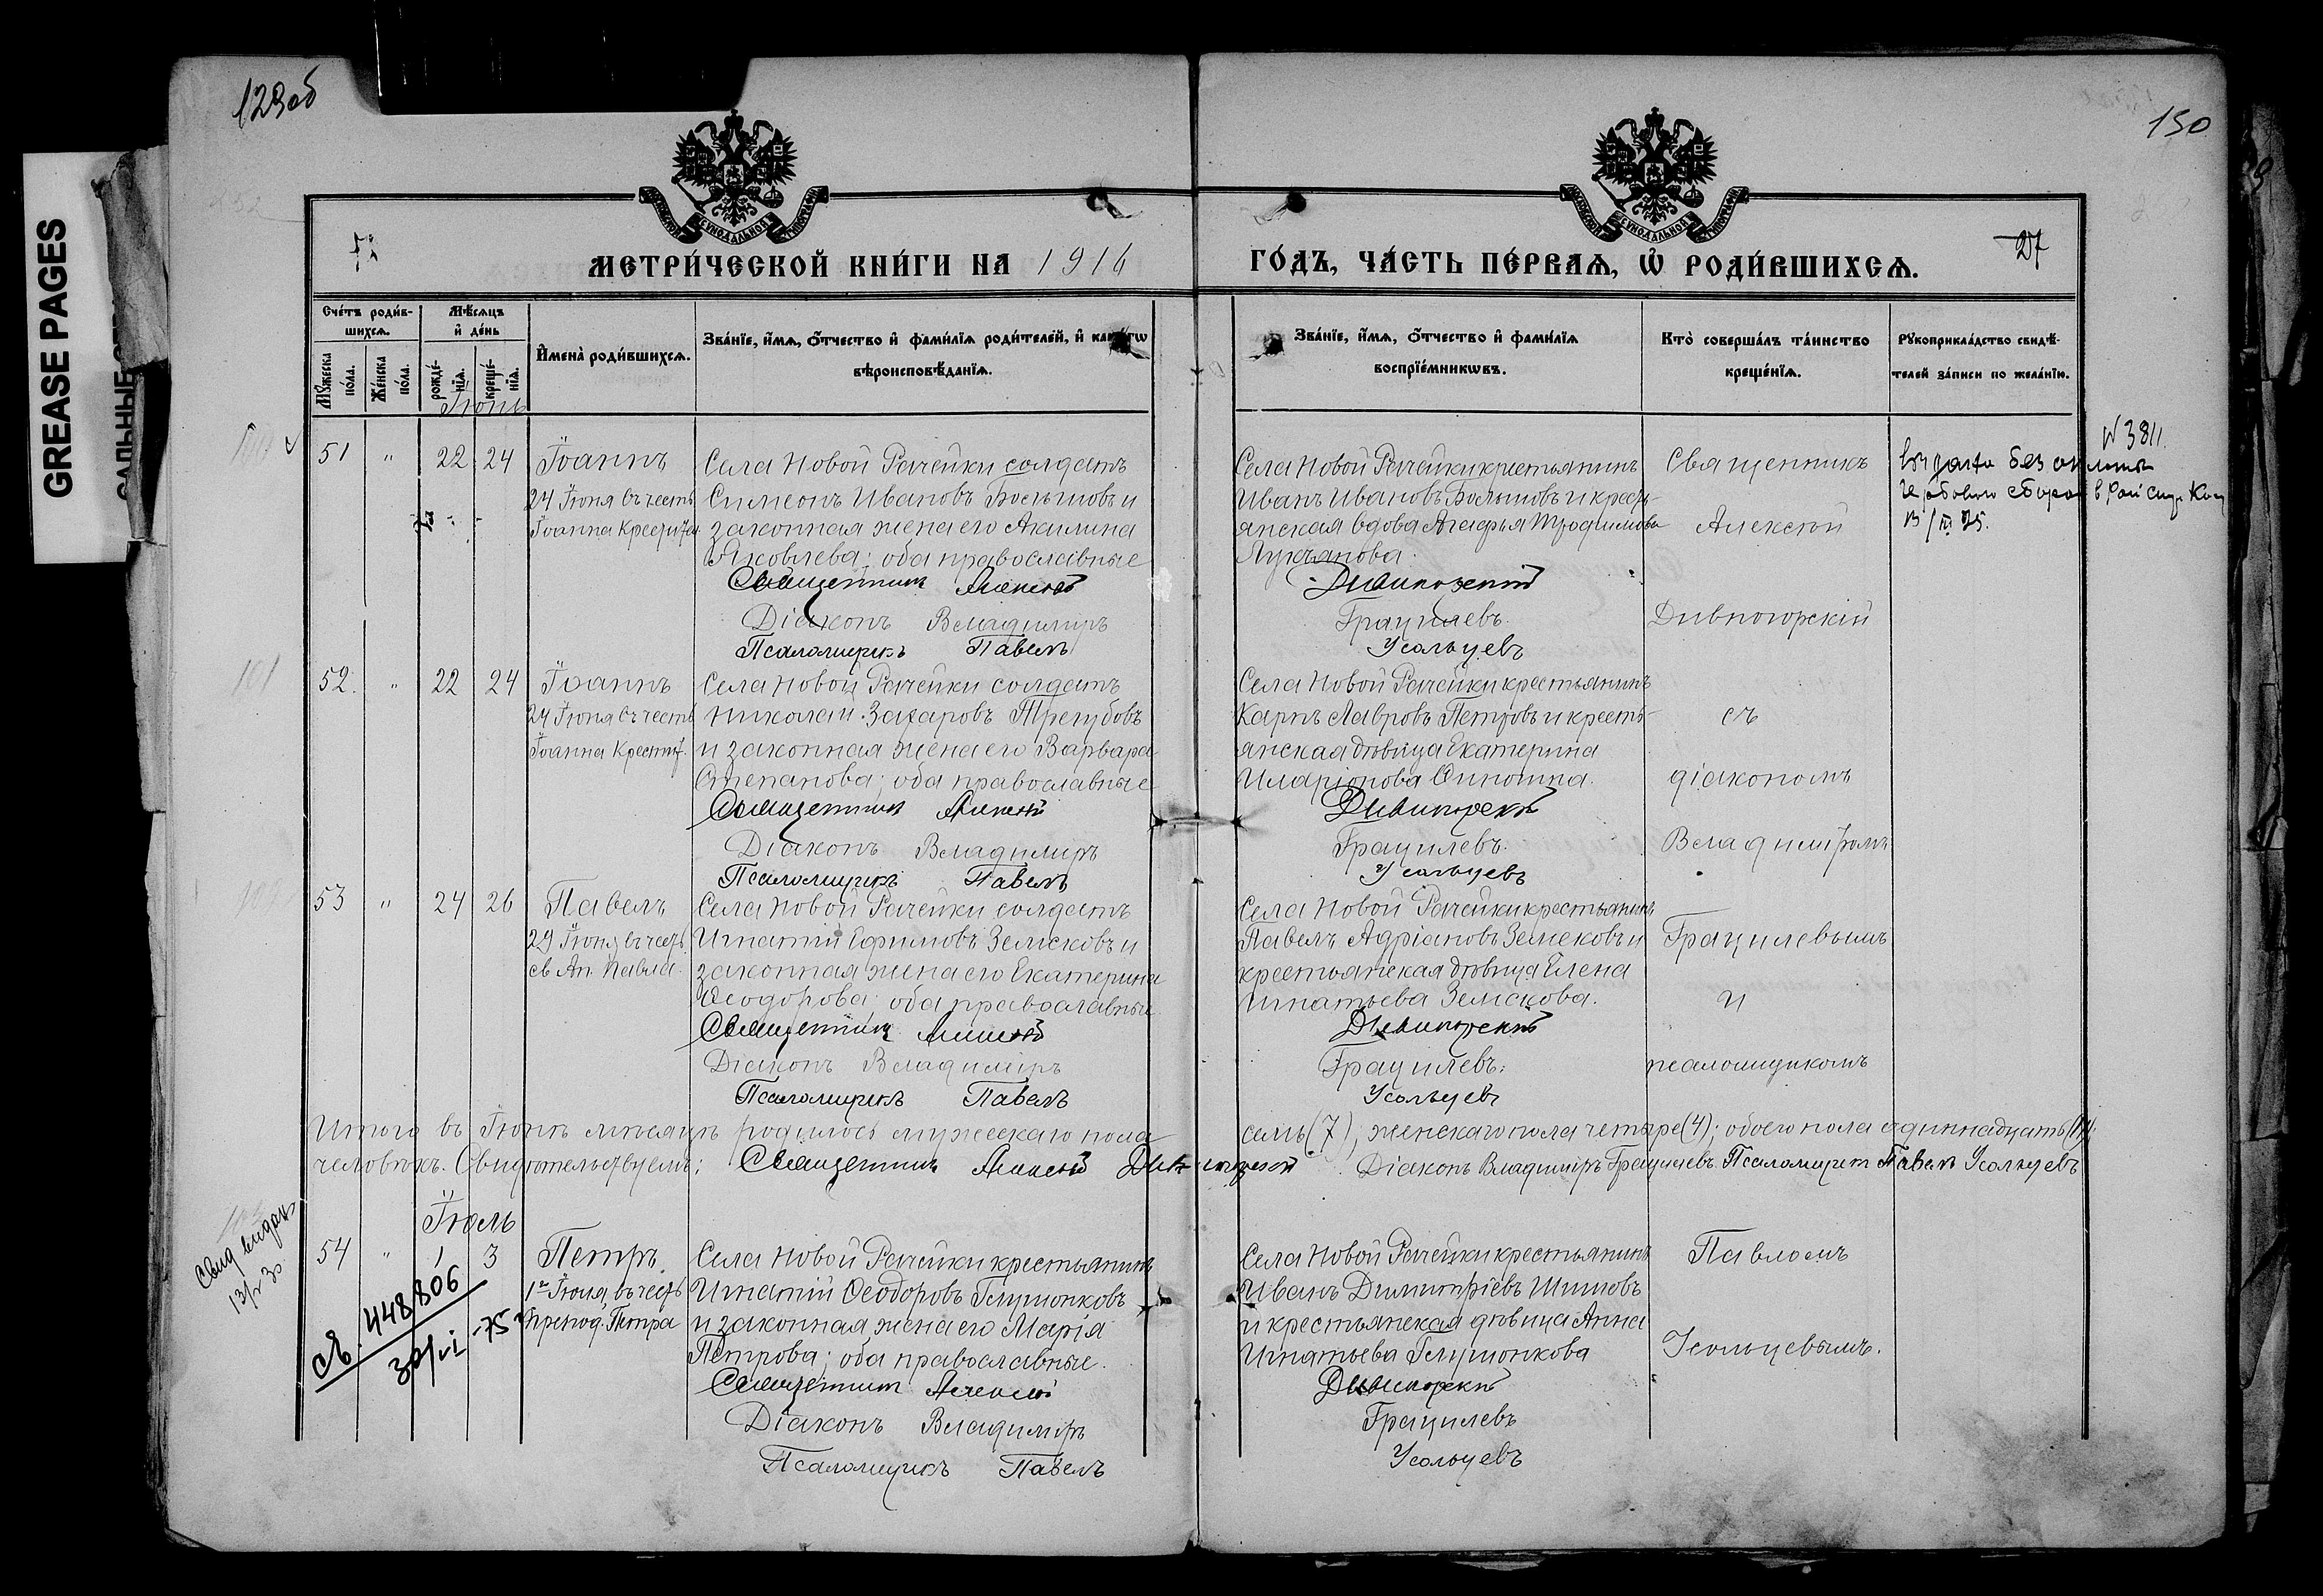 129 об
150
GREASE PAGES
САЛЬНЫЕ
27
МЕТРИ́ЧЕСКОЙ КНИ́ГИ НА 1916
ГО́ДЪ, ЧА́СТЬ ПЕ́РВАѦ, Ѽ РОДИ́ВШИХСѦ.
Сче́тъ роди́в-
шихсѧ.
Мѣ́сѧцъ
и҆ де́нь
Мꙋ́жеска
по́ла.
Же́нска
по́ла.
рожде́-
нїѧ.
креще́-
нїѧ.
И҆мена̀ роди́вшихсѧ.
Зва́нїе, и҆́мѧ, ѻ҆́тчество и҆ фами́лїѧ роди́телей, и҆ како́гѡ
вѣроисповѣ́данїѧ.
Зва́нїе, и҆́мѧ, ѻ҆́тчество и҆ фами́лїѧ
воспрїе́мникѡвъ.
Кто̀ соверша́лъ та́инство
креще́нїѧ.
Рꙋкоприкла́дство свидѣ́-
телей за́писи по жела́нїю.
Іюнь
51 " 22 24 Іоаннъ
24 Іюня въ честь
Іоанна Крестителя
Села Новой Рачейки солдатъ
Симеонъ Ивановъ Большовъ и
законная жена его Акилина
Яковлева; оба православные
Священникъ Алексей
Діаконъ Владиміръ
Псаломщикъ Павелъ
Села Новой Рачейки крестьянинъ
Иванъ Ивановъ Большовъ и кресть-
янская вдова Агафья Трофимова
Лукьянова.
Дивногорскій
Грацилевъ.
Усольцевъ
Священникъ
Алексей
Дивногорскій
N 3811.
без
сбора в
75.
52. " 22 24 Іоаннъ
24 Іюня въ честь
Іоанна Крестит.
Села Новой Рачейки солдатъ
Николай Захаровъ Трегубовъ
и законная жена его Варвара
Степанова; оба православные
Священникъ Алексей
Діаконъ Владиміръ
Псаломщикъ Павелъ
Села Новой Рачейки крестьянинъ
Карпъ Лавровъ Петровъ и кресть-
янская дѣвица Екатерина
Иларіонова
Дивногорскій
Грацилевъ.
Усольцевъ
съ
діакономъ
Владиміромъ
53 " 24 26 Павелъ
29 Іюня въ честь
св Ап. Павла.
Села Новой Рачейки солдатъ
Игнатій Ефимовъ Земсковъ и
законная жена его Екатерина
Ѳеодорова; оба православные
Священникъ Алексей
Діаконъ Владиміръ
Псаломщикъ Павелъ
Села Новой Рачейки крестьянинъ
Павелъ Адріановъ Земсковъ и
крестьянская дѣвица Елена
Игнатьева Земскова.
Дивногорскій
Грацилевъ.
Усольцевъ
Грацилевымъ
и
псаломщикомъ
Итого въ Іюнѣ мѣсяцѣ родилось мужескаго пола семь (7); женскаго пола четыре (4); обоего пола одиннадцать (11)
человѣкъ. Свидѣтельствуемъ: Священникъ Алексей Дивногорскій Діаконъ Владиміръ Грацилевъ. Псаломщикъ Павелъ Усольцевъ
Іюль
54 " 1 3 Петръ.
1го Іюля въ честь
препод. Петра
Села Новой Рачейки крестьянинъ
Игнатій Ѳеодоровъ Глушонковъ
и законная жена его Марія
Петрова; оба православные.
Священникъ Алексей
Діаконъ Владиміръ
Псаломщикъ Павелъ
Села Новой Рачейки крестьянинъ
Иванъ Димитріевъ Шишовъ
и крестьянская дѣвица Анна
Игнатьева Глушонкова
Дивногорскій
Грацилевъ
Усольцевъ
Павломъ
Усольцевымъ.
448806